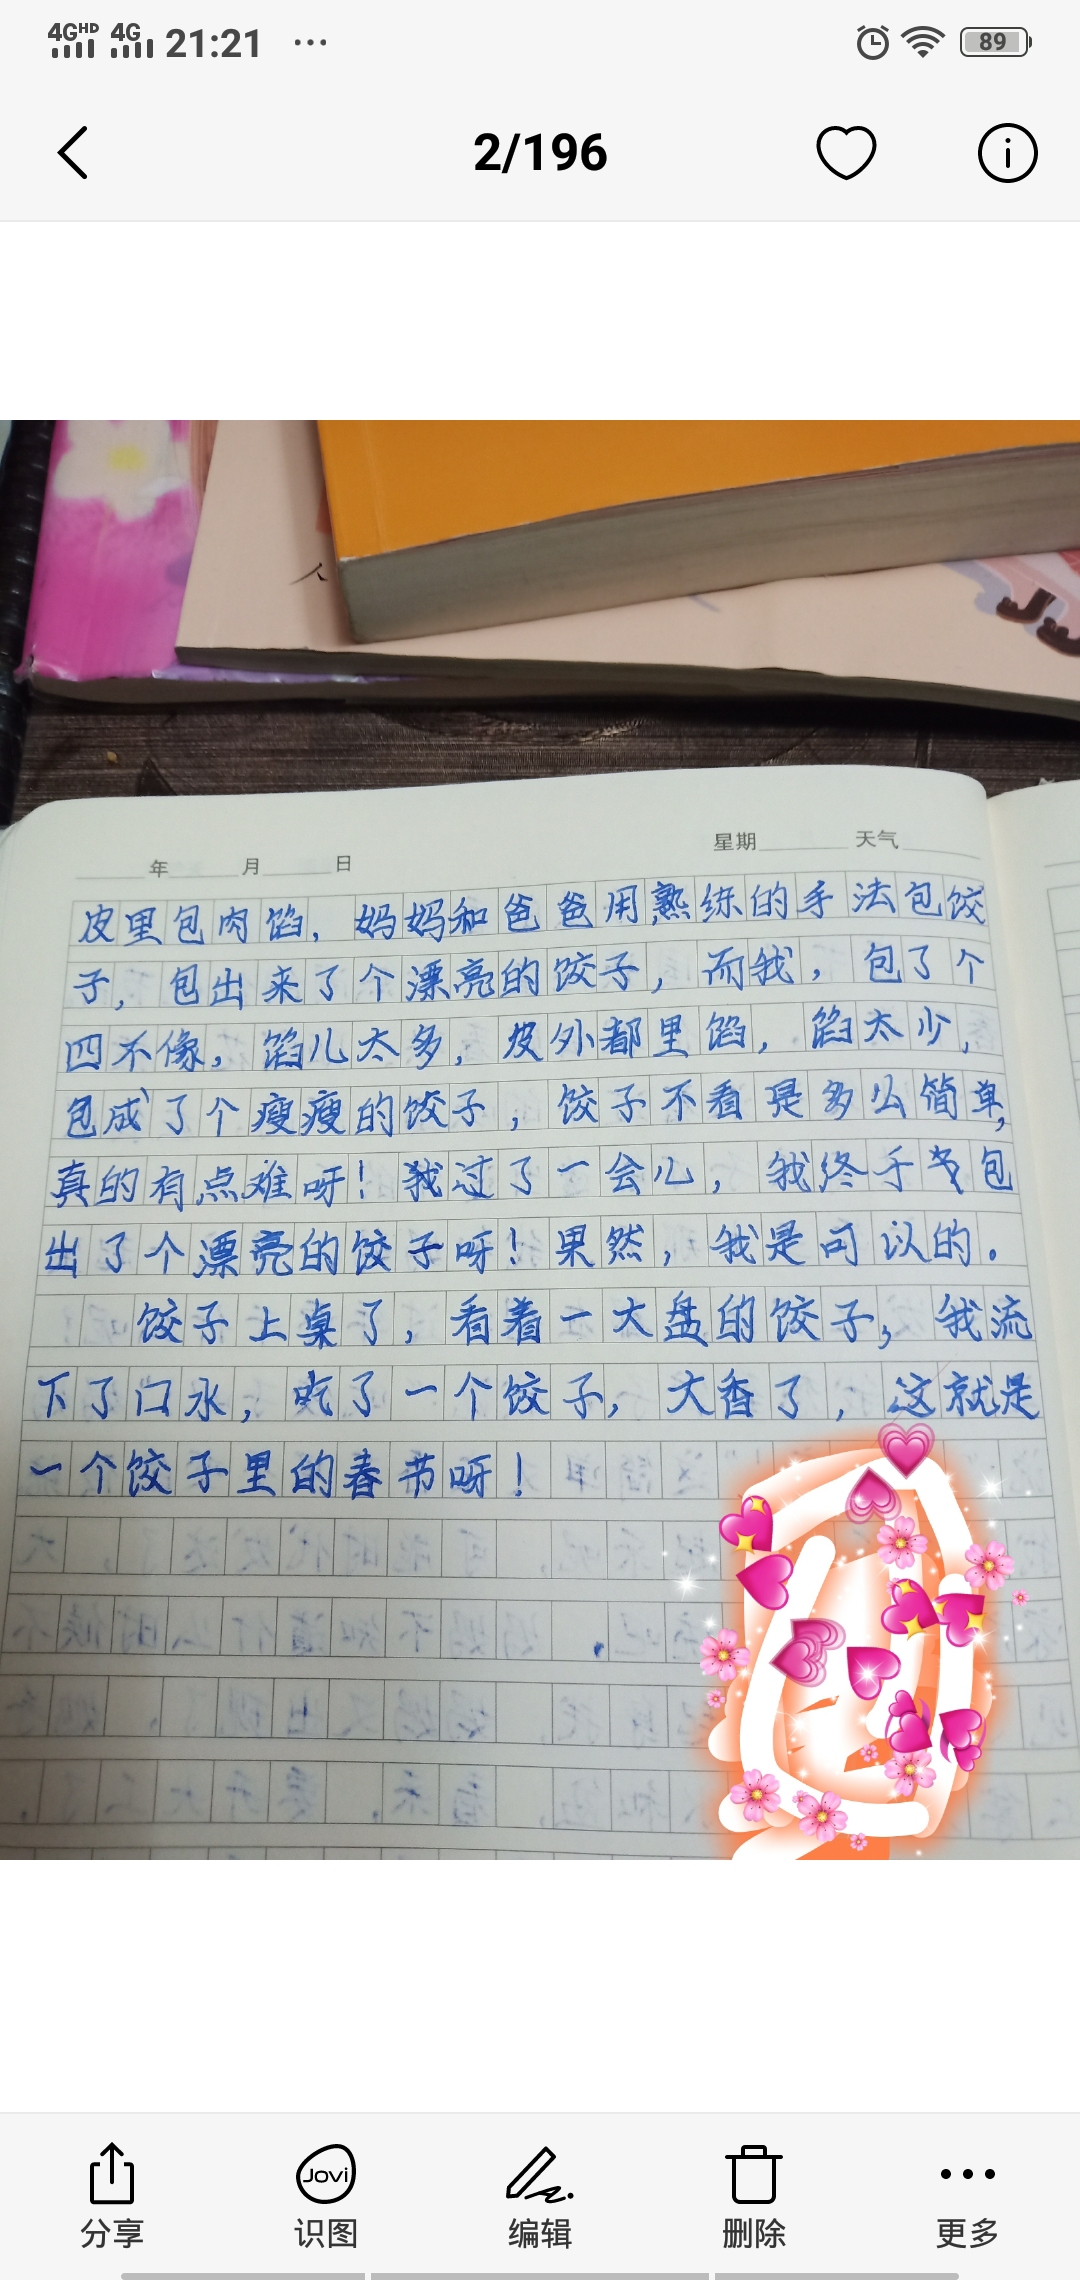 4GHD 4G 21:21 ... 89
2/196
年 月 日 星期 天气
皮里包肉馅，妈妈和爸爸用熟练的手法包饺
子，包出来了个漂亮的饺子，而我，包了个
四不像，馅儿太多，皮外都里馅，馅太少，
包成了个瘦瘦的饺子，饺子不看是多么简单，
真的有点难呀！我过了一会儿，我终于包
出了个漂亮的饺子呀！果然，我是可以的。
饺子上桌了，看着一大盘的饺子，我流
下了口水，吃了一个饺子，大香了，这就是
一个饺子里的春节呀！
Jovi
分享 识图 编辑 删除 更多